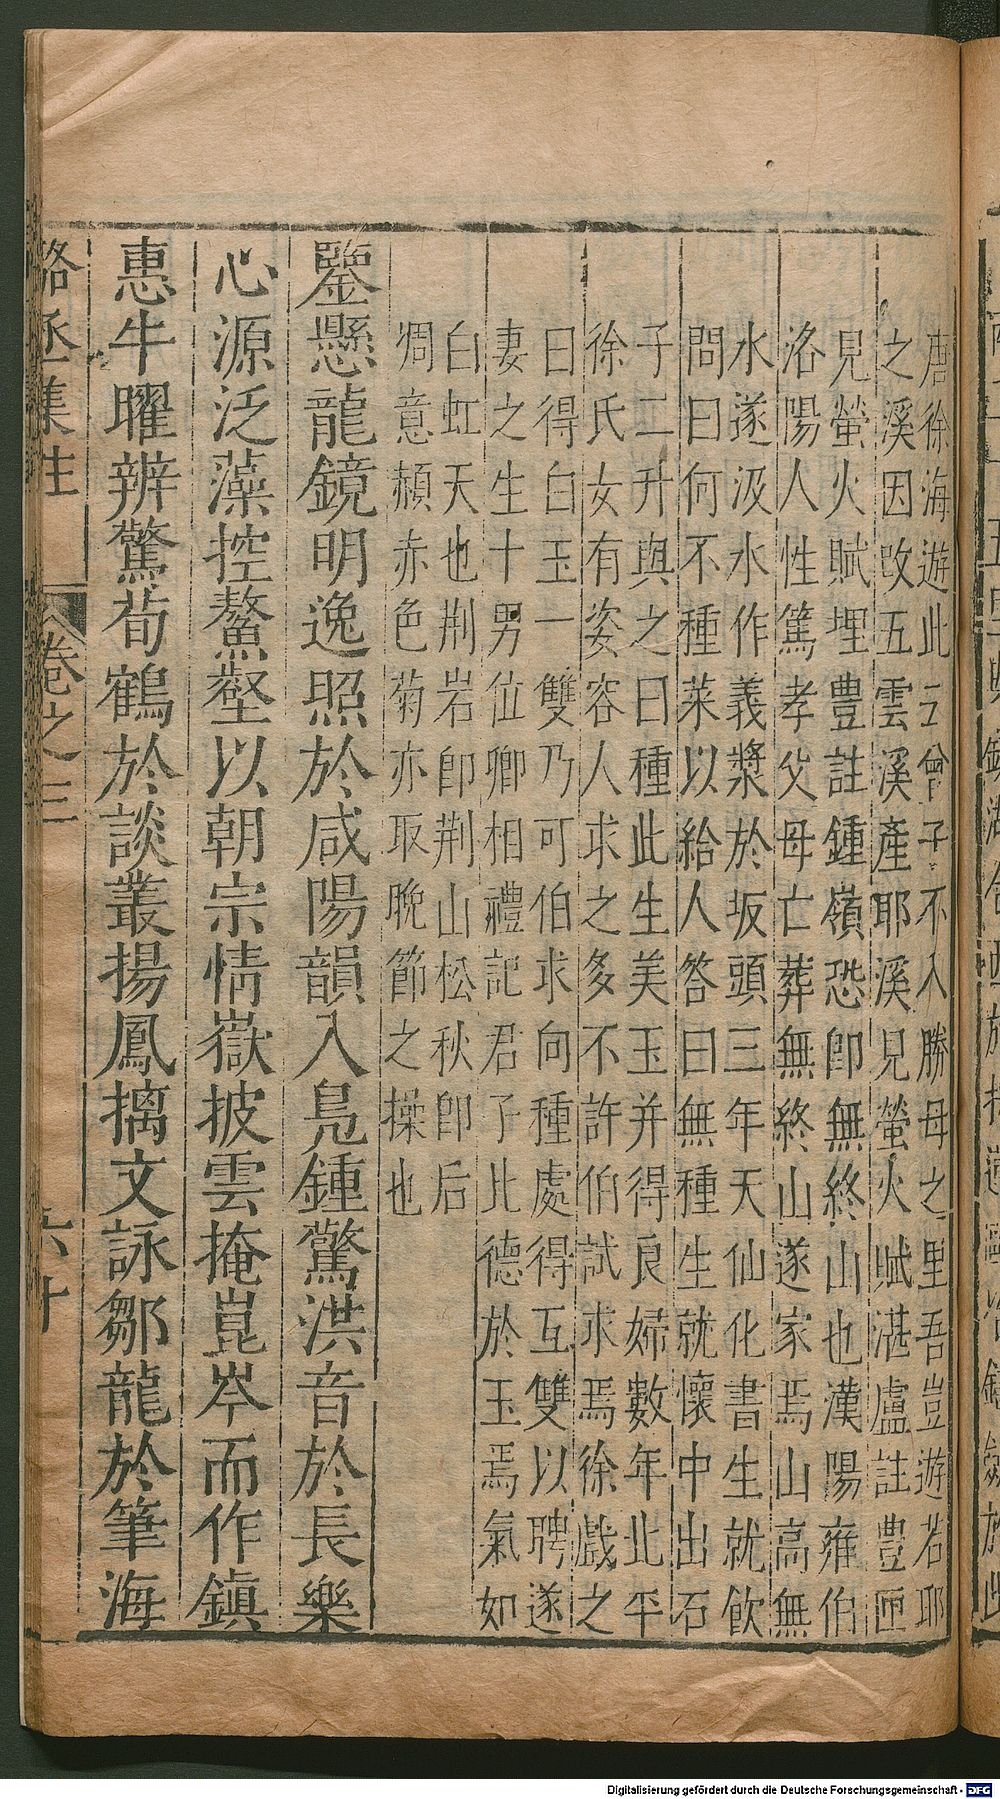 唐徐海遊此云曾子不入勝母之里吾豈遊若耶
之溪因改五雲溪產耶溪見螢火賦湛盧註豐匣
見螢火賦埋豊註鍾嶺恐卽無終山也漢陽雍伯
洛陽人性篤孝父母亡葬無終山遂家焉山高無
水遂汲水作義漿於坂頭三年天仙化書生就飲
問曰何不種菜以給人答曰無種生就懷中出石
子二升與之曰種此生美玉并得良婦數年北平
徐氏女有姿容人求之多不許伯試求焉徐戲之
曰得白玉一雙乃可伯求向種處得互雙以聘遂
妻之生十男位卿相禮記君子比德於玉焉氣如
白虹天也荆岩卽荆山松秋卽后
凋意赬赤色菊亦取晚節之操也
鑒懸龍鏡明逸照於咸陽韻入鳧鍾驚洪音於長樂
心源泛藻控鰲壑以朝宗情嶽披雲掩崑岑而作鎮
惠牛曜辨驚荀鶴於談叢揚鳳摛文詠鄒龍於筆海
駱丞集註 卷之三 六十
Digitalisierung gefördert durch die Deutsche Forschungsgemeinschaft - DFG